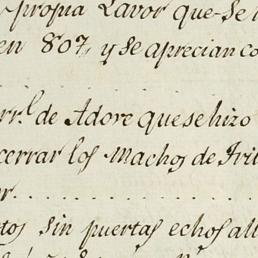 propia Lavor que se
en 807, y se aprecian co
rr.l de Adore que se hizo
cerrar los Machos de Tri
r. . . . . . . . . . . . . . . .
tos sin puertas echos all